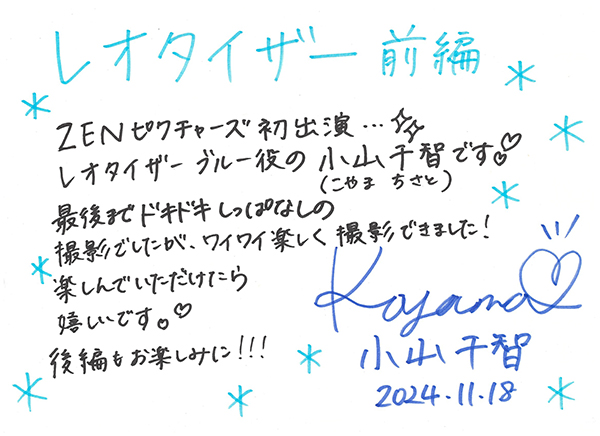 レオタイザー 前編
ZENピクチャーズ初出演…
レオタイザーブルー役の 小山千智です♡
(こやま ちさと)
最後までドキドキしっぱなしの
撮影でしたが、ワイワイ楽しく撮影できました!
楽しんでいただけたら
嬉しいです。♡
後編もお楽しみに!!!
Koyama♡
小山千智
2024.11.18